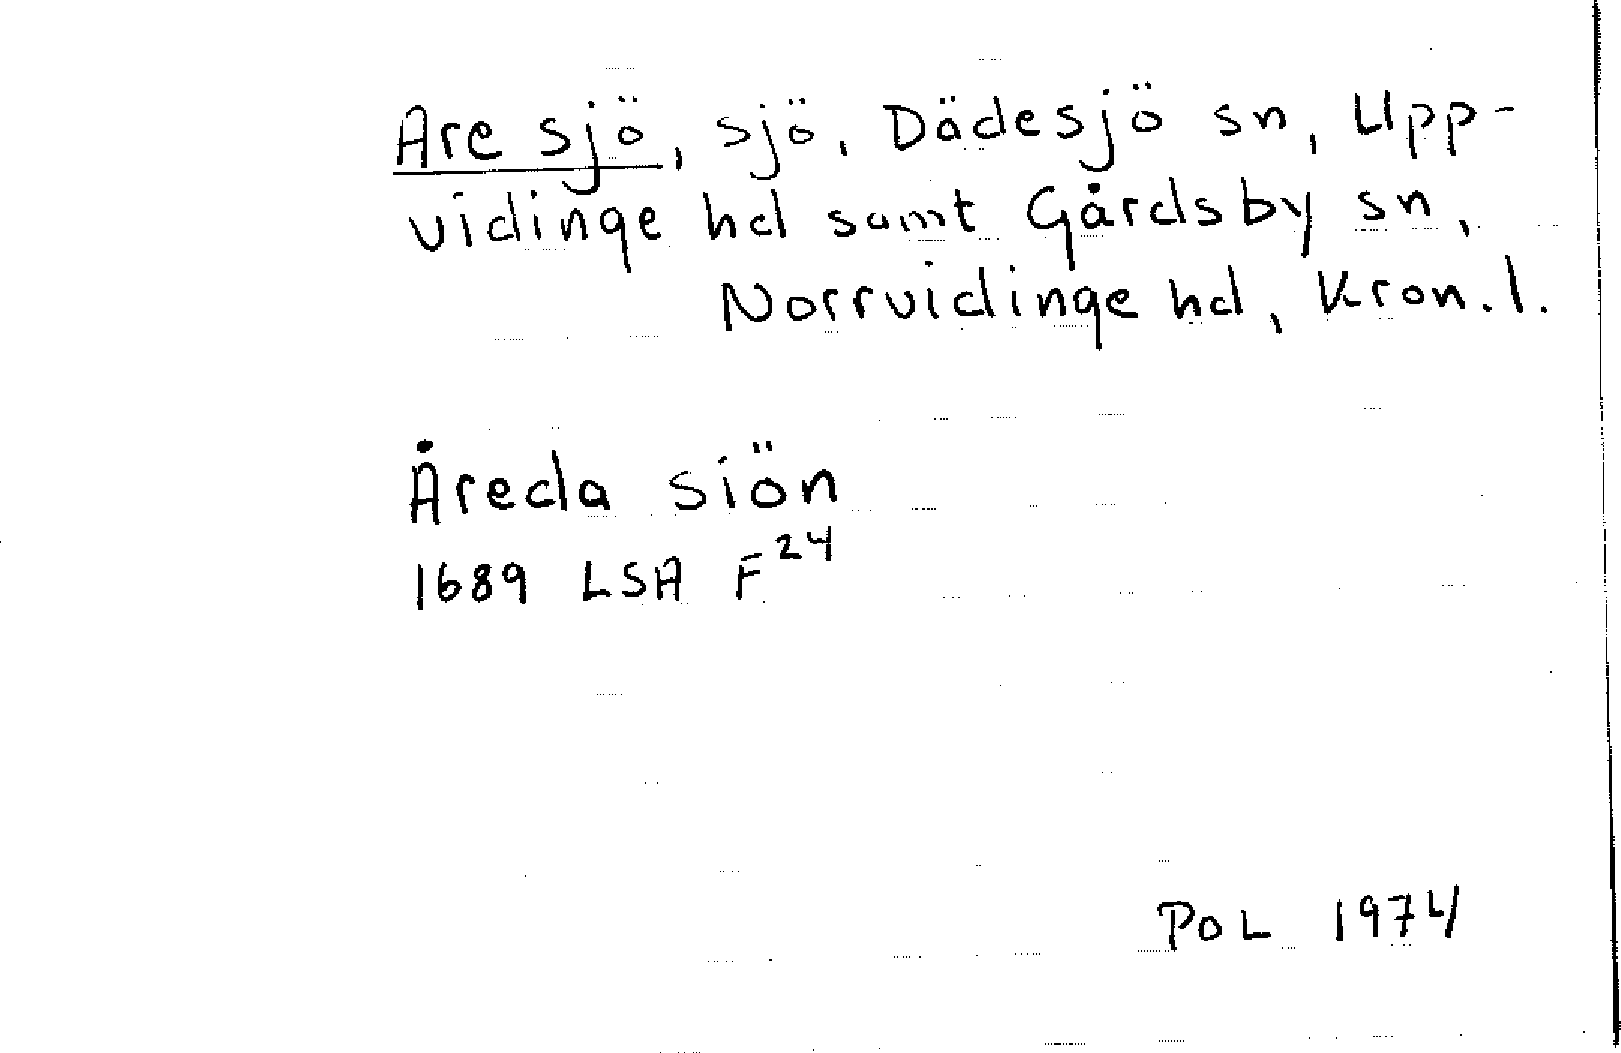 Are sjö, sjö, Dädesjö sn, Upp-
vidinge hd samt Gårdsby sn,
Norrvidinge hd, Kron.l.
Åreda siön
1689 LSA F24
PoL 1974